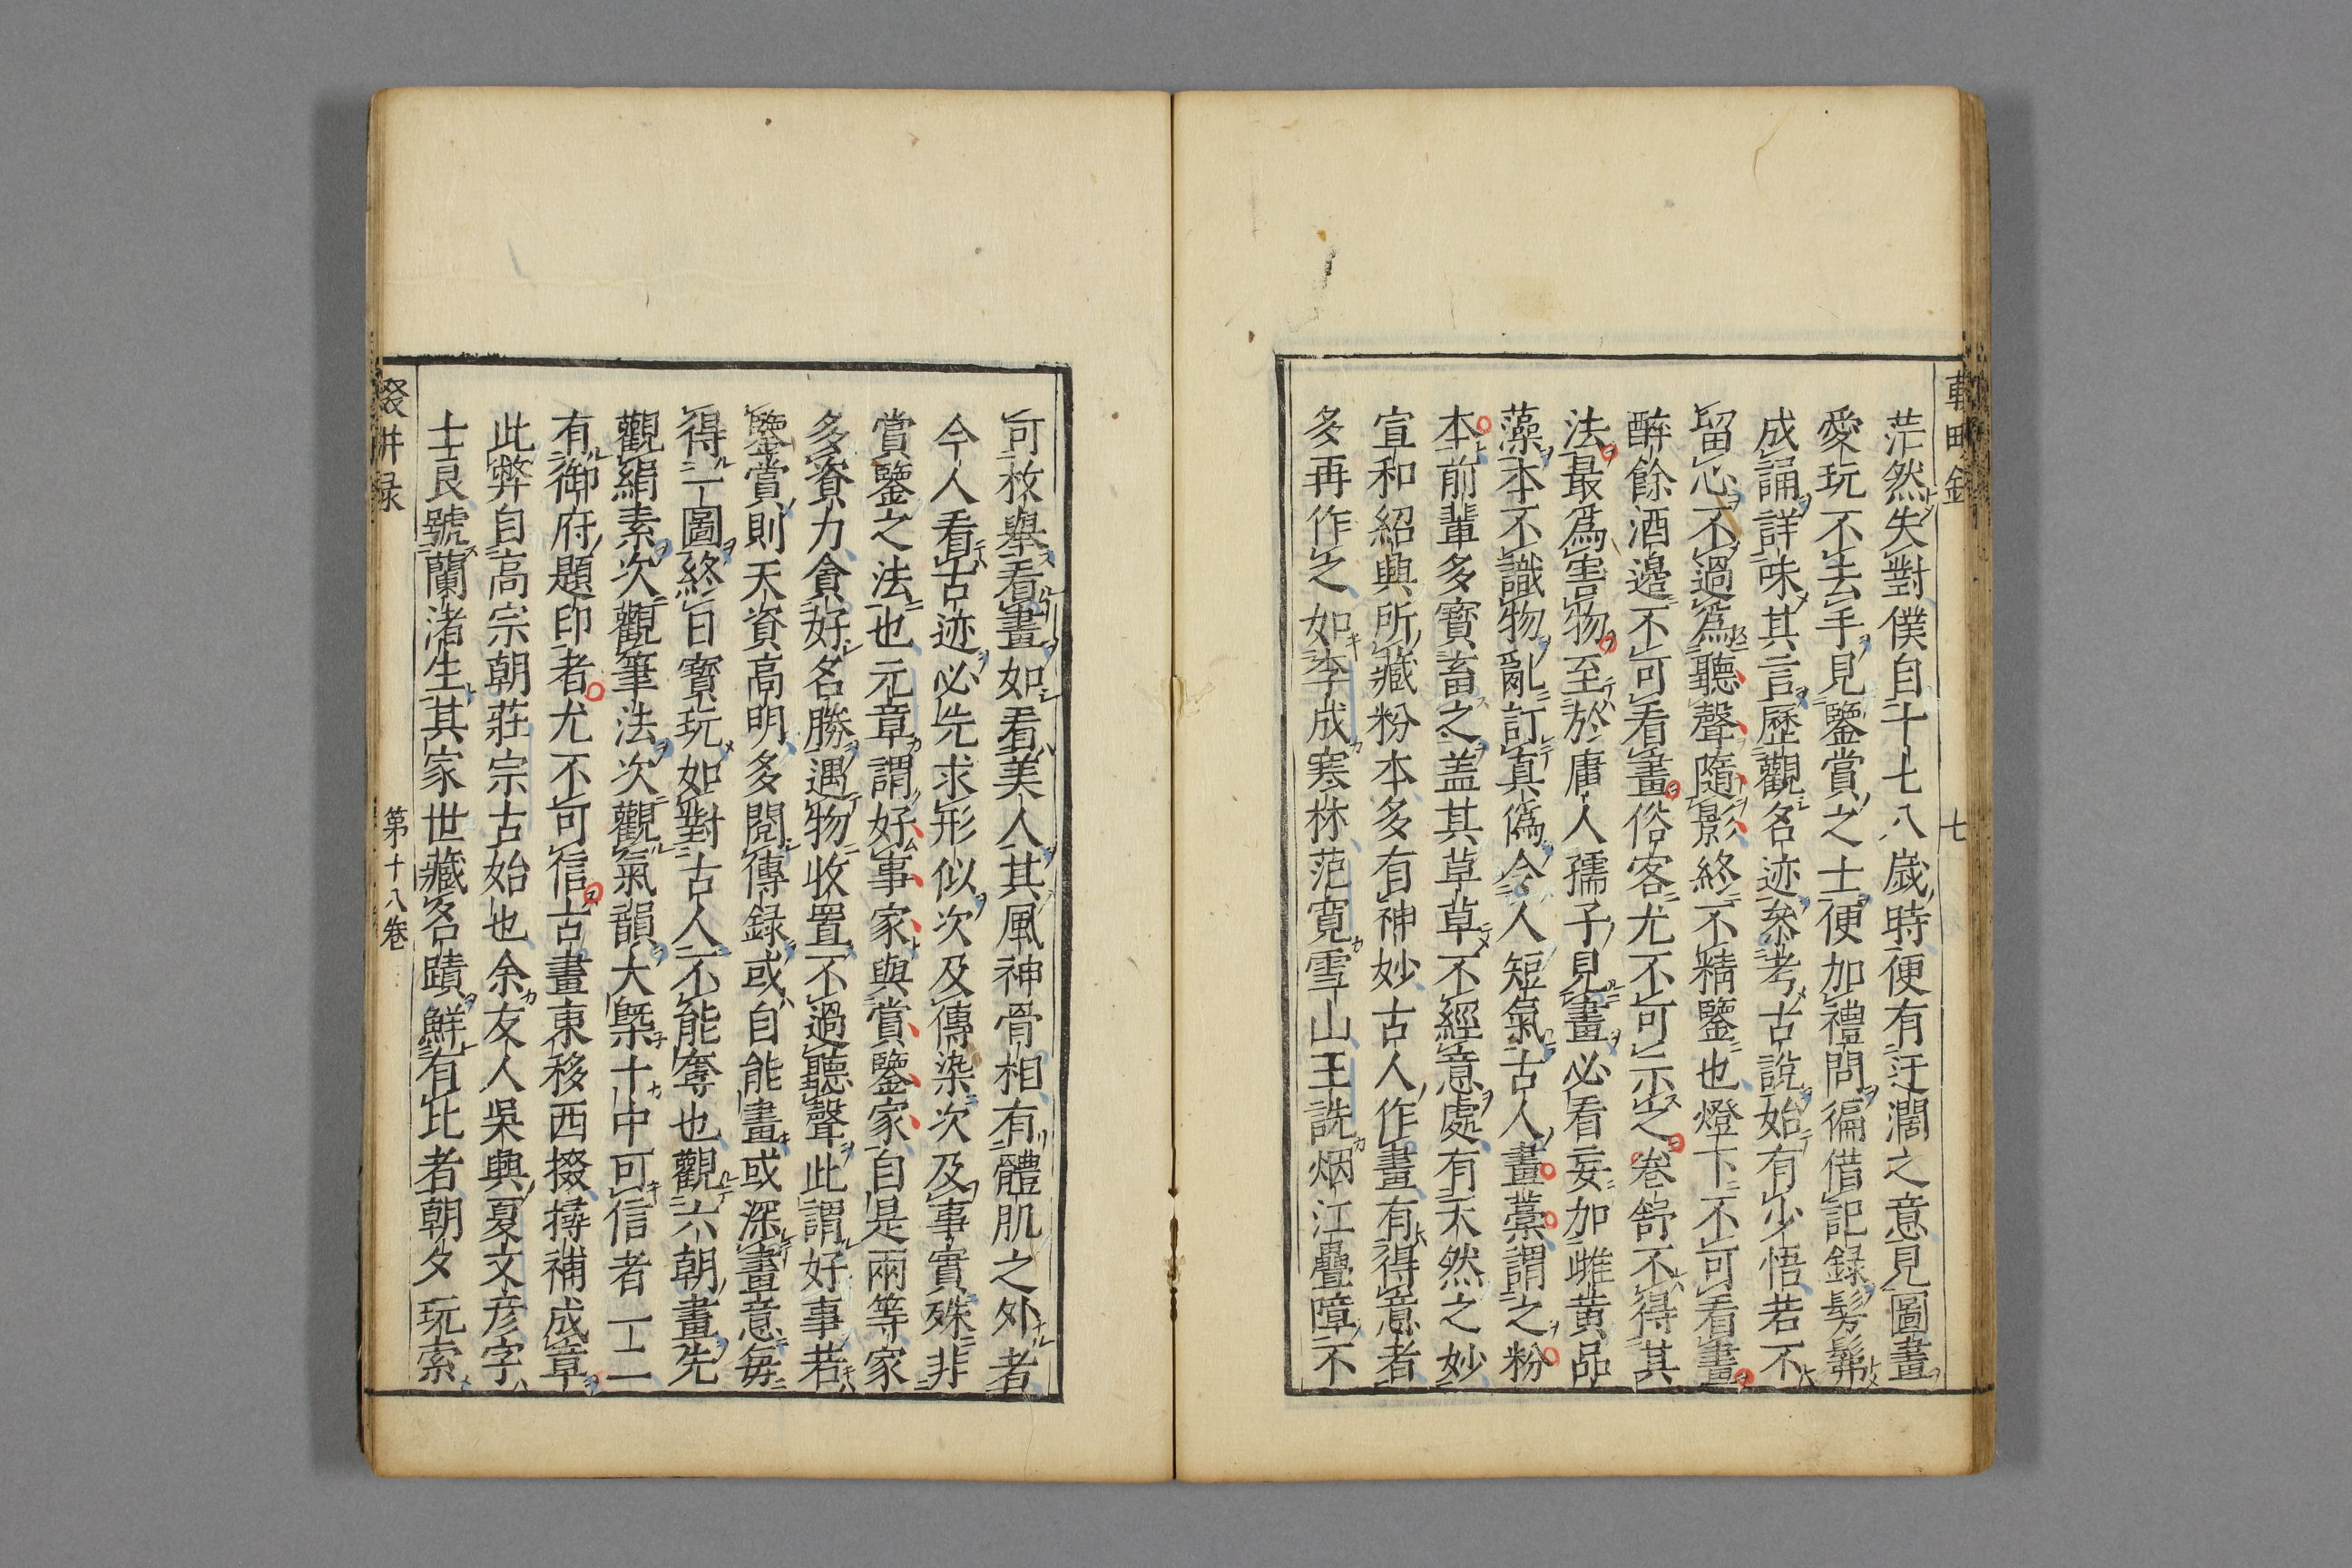 茫然失對僕自十七八歲時便有迂濶之意見圖畫
愛玩不去手見鑒賞之士便加禮問徧借記録髣髴
成誦詳味其言歷觀名迹叅考古說始有少悟若不
留心不過爲聽聲隨影終不精鑒也燈下不可看畫
醉餘酒邊不可看畫俗客尤不可示之卷舒不得其
法最爲害物至於庸人孺子見畫必看妄加雌黄品
藻本不識物亂訂真僞令人短氣古人畫藁謂之粉
本前輩多寶畜之盖其草草不經意處有天然之妙
宣和紹興所藏粉本多有神妙古人作畫有得意者
多再作之如李成寒林范寛雪山王詵烟江疊嶂不
七
可枚舉看畫如看美人其風神骨相有體肌之外者
今人看古迹必先求形似次及傳染次及事實殊非
賞鑒之法也元章謂好事家與賞鑒家自是兩等家
多資力貪好名勝遇物收置不過聽聲此謂好事若
鑒賞則天資高明多閲傳録或自能畫或深畫意毎
得一圖終日寶玩如對古人不能奪也觀六朝畫先
觀絹素次觀筆法次觀氣韻大槩十中可信者一二
有御府題印者尤不可信古畫東移西掇撏補成章
此弊自高宗朝莊宗古始也余友人吳興夏文彦字
士良號蘭渚生其家世藏名蹟鮮有比者朝夕玩索
第十八卷